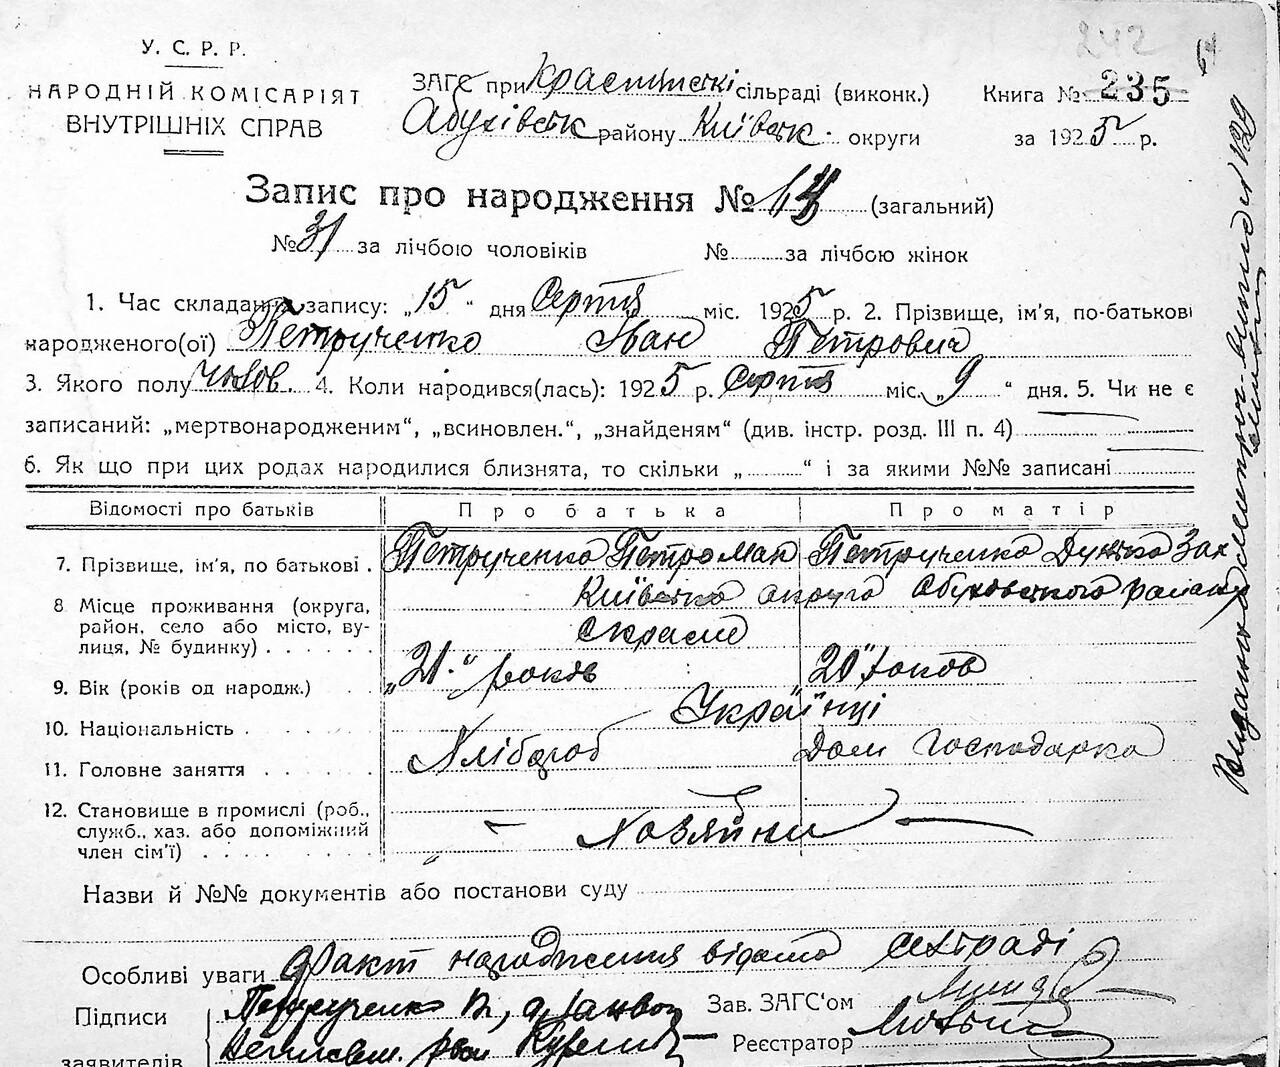 242
64
У. С. Р. Р.
НАРОДНІЙ КОМІСАРІЯТ
ВНУТРІШНІХ СПРАВ
ЗАГС при сільраді (виконк.)
Книга № 235
району Київськ. округи
за 1925 р.
Запис про народження № (загальний)
№ 31 за лічбою чоловіків № за лічбою жінок
1. Час складання запису: „15“ дня Серпня міс. 1925 р. 2. Прізвище, ім'я, по-батькові
народженого(ої) Петрученко Іван Петрович
3. Якого полу чолов. 4. Коли народився(лась): 1925 р. Серпня міс. „9“ дня. 5. Чи не є
записаний: „мертвонародженим“, „всиновлен.“, „знайденям“ (див. інстр. розд. III п. 4)
6. Як що при цих родах народилися близнята, то скільки „ “ і за якими №№ записані
Відомості про батьків Про батька Про матір
7. Прізвище, ім'я, по батькові . Петрученко Петро Мак Петрученко Зах
8 Місце проживання (округа, Київська округа Обуховського
район, село або місто, ву-
лиця, № будинку)
9. Вік (років од народж.) „21.“ років 20“ років
10. Національність Українці
11. Головне заняття Хлібороб Дом Господарка
12. Становище в промислі (роб.,
служб., хаз. або допоміжний Хозяйни
член сім'ї)
Назви й №№ документів або постанови суду
Особливі уваги Факт народження відомо сельраді
Підписи Петрученко
Зав. ЗАГС'ом
заявителів
Реєстратор